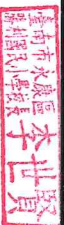 臺南市永康區
勝利國民小學校長
李世賢